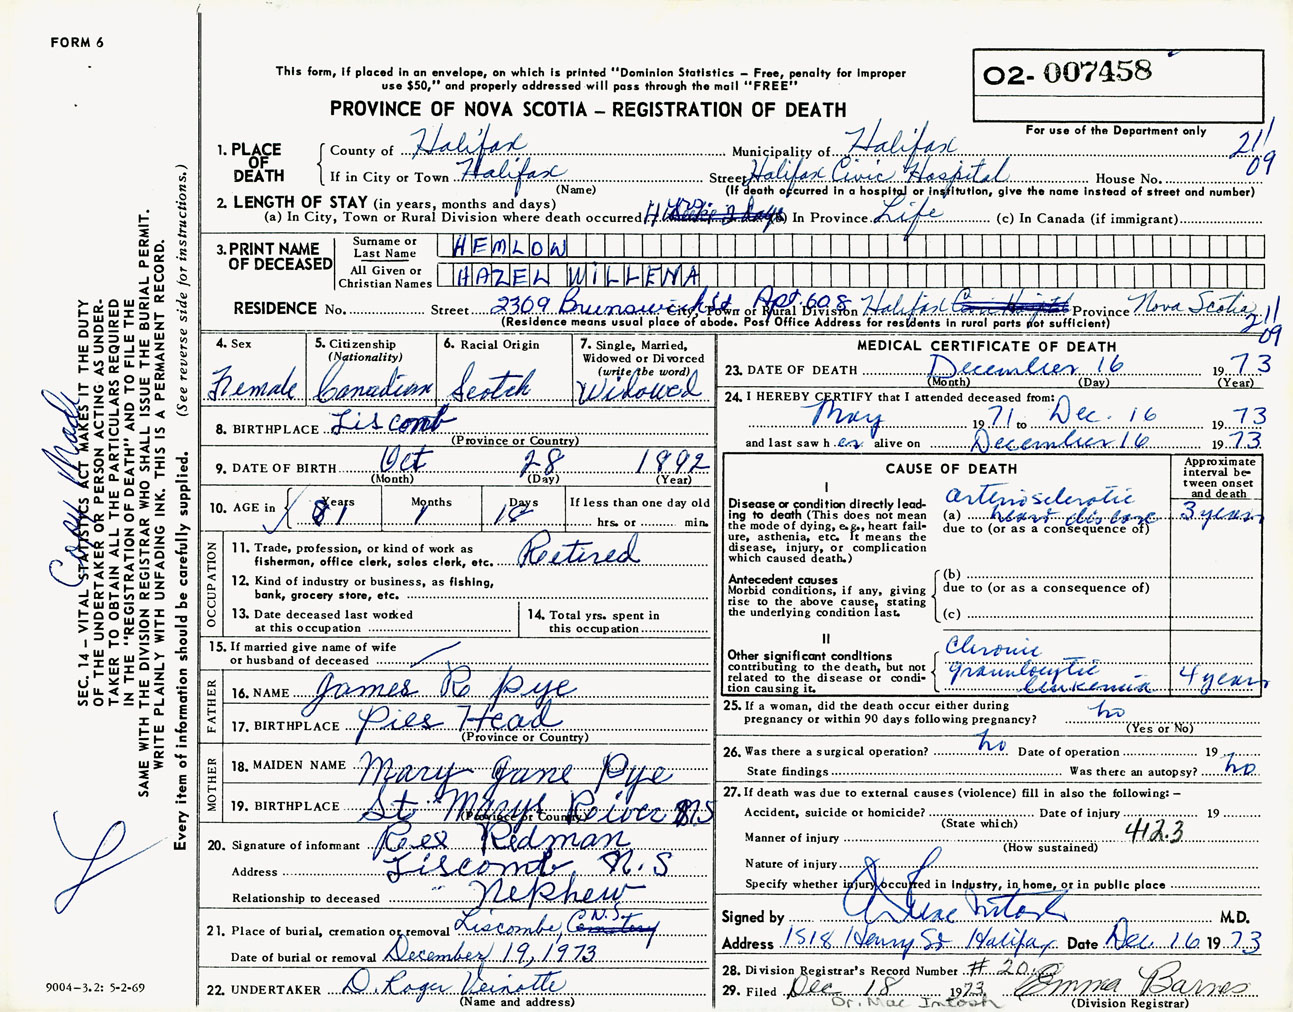 FORM 6
This form, if placed in an envelope, on which is printed "Dominion Statistics – Free, penalty for improper
use $50," and properly addressed will pass through the mail "FREE"
PROVINCE OF NOVA SCOTIA – REGISTRATION OF DEATH
02- 007458
For use of the Department only
21/09
1. PLACE OF DEATH
County of Halifax Municipality of Halifax
If in City or Town Halifax Street Halifax Civic Hospital House No.
(Name) (If death occurred in a hospital or institution, give the name instead of street and number)
2. LENGTH OF STAY (in years, months and days)
(a) In City, Town or Rural Division where death occurred 4 yrs. (b) In Province Life (c) In Canada (if immigrant)
3. PRINT NAME OF DECEASED
Surname or Last Name HEMLOW
All Given or Christian Names HAZEL WILLENA
RESIDENCE No. Street 2309 Brunswick St Apt. 608 City, Town or Rural Division Halifax Province Nova Scotia
21/09
(Residence means usual place of abode. Post Office Address for residents in rural parts not sufficient)
4. Sex Female
5. Citizenship (Nationality) Canadian
6. Racial Origin Scotch
7. Single, Married, Widowed or Divorced (write the word) Widowed
8. BIRTHPLACE Liscomb
(Province or Country)
9. DATE OF BIRTH Oct 28 1892
(Month) (Day) (Year)
10. AGE in Years 81 Months 1 Days 18 If less than one day old
hrs. or min.
OCCUPATION
11. Trade, profession, or kind of work as
fisherman, office clerk, sales clerk, etc. Retired
12. Kind of industry or business, as fishing,
bank, grocery store, etc.
13. Date deceased last worked
at this occupation
14. Total yrs. spent in
this occupation
15. If married give name of wife
or husband of deceased
FATHER
16. NAME James R Pye
17. BIRTHPLACE Pies Head
(Province or Country)
MOTHER
18. MAIDEN NAME Mary Jane Pye
19. BIRTHPLACE St Marys River N.S
(Province or Country)
20. Signature of informant Rex Redman
Address Liscomb, N.S
Relationship to deceased Nephew
21. Place of burial, cremation or removal Liscombe, N.S.
Date of burial or removal December 19, 1973
22. UNDERTAKER D. Roger Veinotte
(Name and address)
MEDICAL CERTIFICATE OF DEATH
23. DATE OF DEATH December 16 1973
(Month) (Day) (Year)
24. I HEREBY CERTIFY that I attended deceased from:
May 1971 to Dec. 16 1973
and last saw her alive on December 16 1973
CAUSE OF DEATH
Approximate interval between onset and death
I
Disease or condition directly leading to death (This does not
mean the mode of dying, e.g., heart failure, asthenia, etc. It means the
disease, injury, or complication
which caused death.)
(a) arteriosclerotic heart disease 3 years
due to (or as a consequence of)
Antecedent causes
Morbid conditions, if any, giving
rise to the above cause, stating
the underlying condition last.
(b)
due to (or as a consequence of)
(c)
II
Other significant conditions
contributing to the death, but not
related to the disease or condition causing it.
Chronic granulocytic leukemia 4 years
25. If a woman, did the death occur either during
pregnancy or within 90 days following pregnancy? no
(Yes or No)
26. Was there a surgical operation? no Date of operation 19
State findings Was there an autopsy? no
27. If death was due to external causes (violence) fill in also the following: –
Accident, suicide or homicide? Date of injury 19
(State which)
Manner of injury 412.3
(How sustained)
Nature of injury
Specify whether injury occurred in industry, in home, or in public place
Signed by A D MacIntosh M.D.
Address 1518 Henry St Halifax Date Dec 16 1973
28. Division Registrar's Record Number # 20
29. Filed Dec 18 1973 Emma Barnes
Dr. Mac Intosh (Division Registrar)
SEC. 14 – VITAL STATISTICS ACT MAKES IT THE DUTY
OF THE UNDERTAKER OR PERSON ACTING AS UNDER-
TAKER TO OBTAIN ALL THE PARTICULARS REQUIRED
IN THE "REGISTRATION OF DEATH" AND TO FILE THE
SAME WITH THE DIVISION REGISTRAR WHO SHALL ISSUE THE BURIAL PERMIT.
WRITE PLAINLY WITH UNFADING INK. THIS IS A PERMANENT RECORD.
Every item of information should be carefully supplied. (See reverse side for instructions.)
Copy Made
9004-3.2: 5-2-69